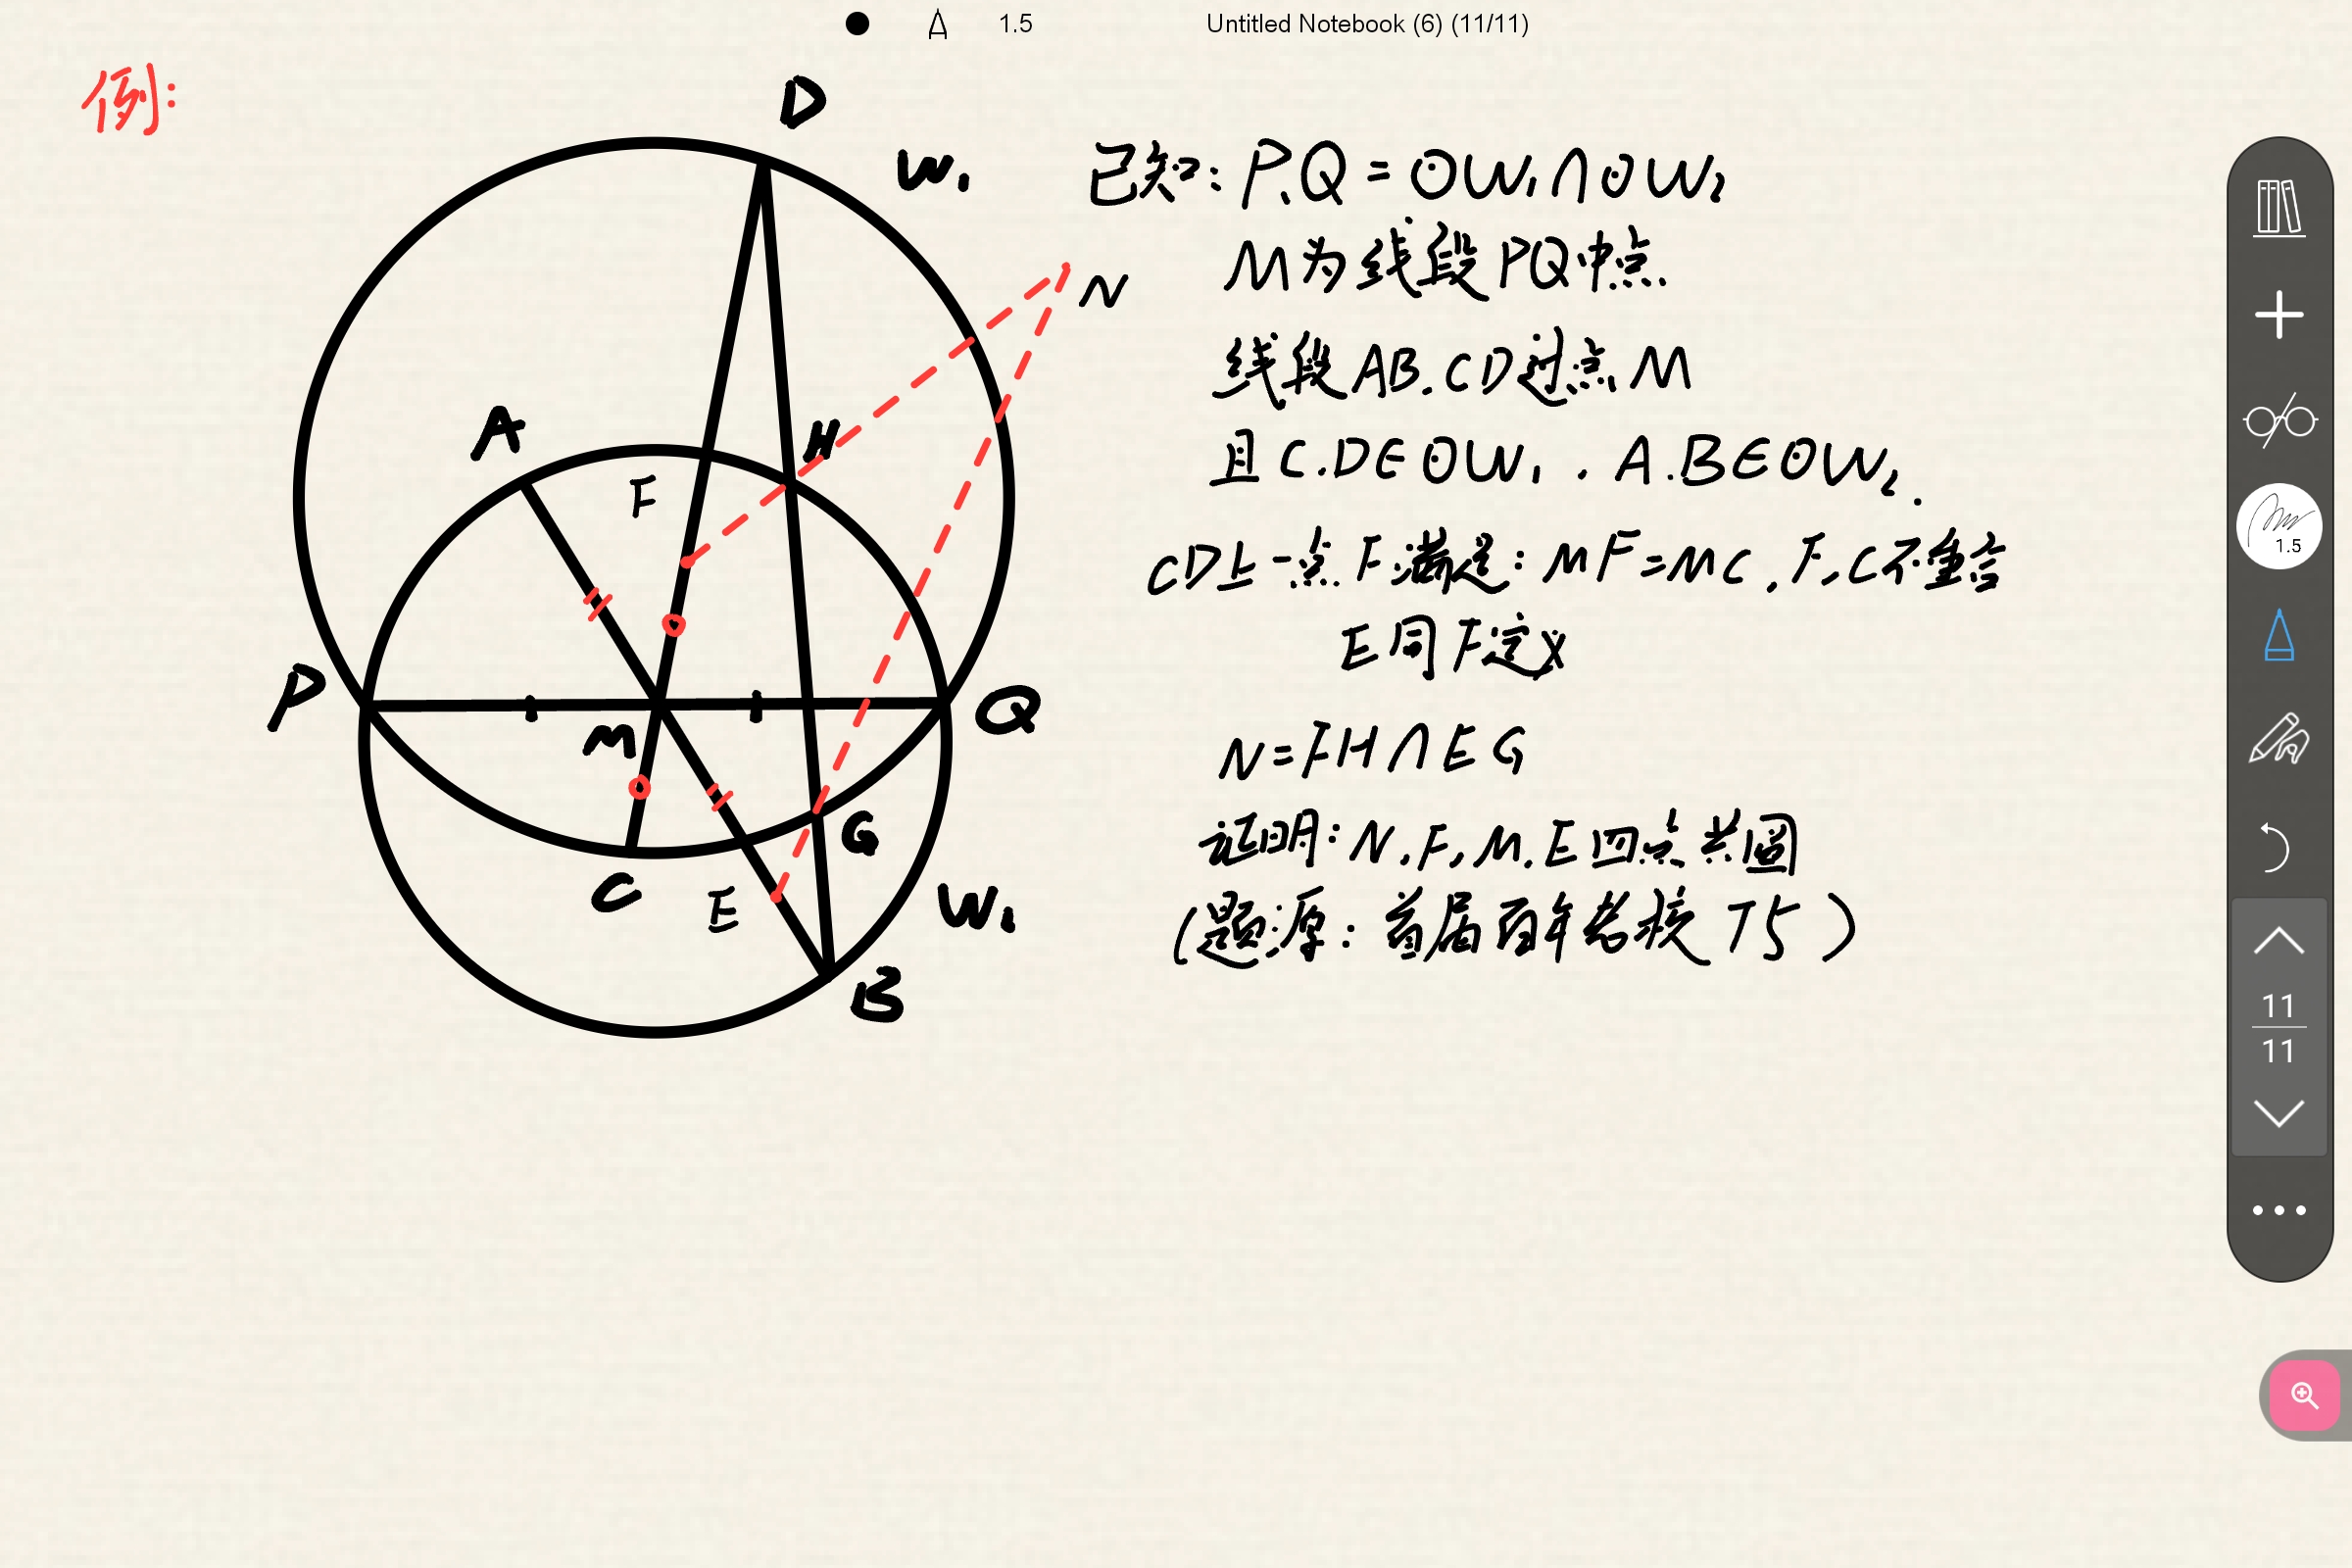 1.5 Untitled Notebook (6) (11/11)
例:
D
W₁
N
A
H
F
P
M
Q
C
E
G
W₂
B
已知: P、Q = ⊙W₁∩⊙W₂
M为线段PQ中点.
线段AB.CD过点M
且C.D∈⊙W₁ . A.B∈⊙W₂.
CD上一点F满足: MF=MC, F、C不重合
E同F定义
N=FH∩EG
证明: N.F,M.E四点共圆
(题源: 首届百年老校T5)
1.5
11
11